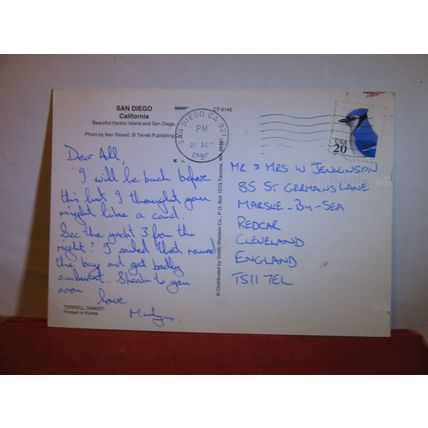 SAN DIEGO
California
Beautiful Harbor Island and San Diego
Photo by Ken Raveill, © Terrell Publishing
CT-9145
SAN DIEGO CA 921
PM
1995
USA
20
Dear All,
I will be back before
this but I thought you
might like a card.
See the yacht 3 from the
right? I sailed that round
the bay and got badly
sunburnt. Speak to you
soon
love
Martyn.
TERRELL
Printed in Korea
© Distributed by Smith-Western Co., P.O. Box 1573, Tacoma, WA 98401
MR & MRS W JENKINSON
85 ST. GERMANS LANE
MARSKE-BY-SEA
REDCAR
CLEVELAND
ENGLAND
TS11 7EL